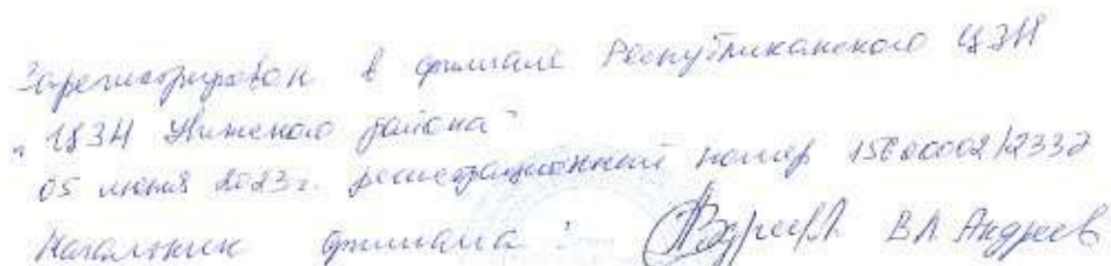 Зарегистрирован в филиале Республиканского ЦЗН
"ЦЗН Увинского района"
05 июня 2023г. регистрационный номер 15820002/2332
Начальник филиала: В.Л. Андреев